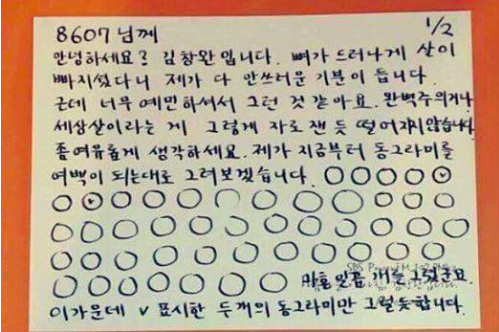 8607님께
1/2
안녕하세요? 김창완입니다. 뼈가 드러나게 살이
빠지셨다니 제가 다 안쓰러운 기분이 듭니다.
근데 너무 예민하셔서 그런 것 같아요. 완벽주의거나
세상살이라는 게 그렇게 자로 잰 듯 떨어지지 않습니다.
좀 여유롭게 생각하세요. 제가 지금부터 동그라미를
여백이 되는대로 그려보겠습니다.
마흔 일곱 개를 그렸군요.
이 가운데 v 표시한 두개의 동그라미만 그럴듯합니다.